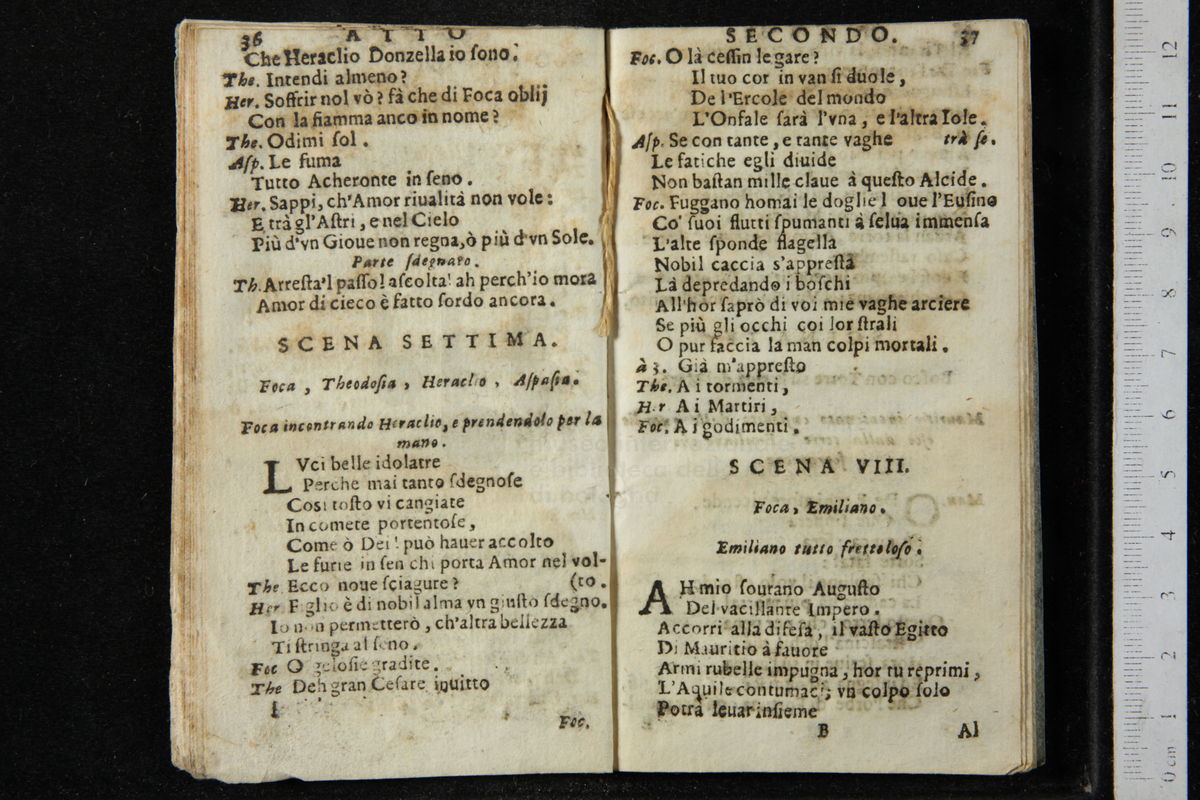 36 ATTO
Che Heraclio Donzella io sono.
The. Intendi almeno?
Her. Soffrir nol vò? fà che di Foca oblij
Con la fiamma anco in nome?
The. Odimi sol.
Asp. Le fuma
Tutto Acheronte in seno.
Her. Sappi, ch'Amor riualità non vole:
E trà gl'Astri, e nel Cielo
Più d'vn Gioue non regna, ò più d'vn Sole.
Parte sdegnato.
Th. Arresta'l passo! ascolta! ah perch'io mora
Amor di cieco è fatto sordo ancora.
SCENA SETTIMA.
Foca, Theodosia, Heraclio, Aspasia.
Foca incontrando Heraclio, e prendendolo per la
mano.
LVci belle idolatre
Perche mai tanto sdegnose
Così tosto vi cangiate
In comete portentose,
Come ò Dei! può hauer accolto
Le furie in sen chi porta Amor nel vol-
The Ecco noue sciagure? (to.
Her Figlio è di nobil alma vn giusto sdegno.
Io non permetterò, ch'altra bellezza
Ti stringa al seno.
Foc O gelosie gradite.
The Deh gran Cesare inuitto
Foc.
SECONDO. 37
Foc. O là cessin le gare?
Il tuo cor in van si duole,
De l'Ercole del mondo
L'Onfale sarà l'vna, e l'altra Iole.
Asp. Se con tante, e tante vaghe trà se.
Le fatiche egli diuide
Non bastan mille claue à questo Alcide.
Foc. Fuggano homai le doglie l oue l'Eusino
Co' suoi flutti spumanti à selua immensa
L'alte sponde flagella
Nobil caccia s'appresta
Là depredando i boschi
All'hor saprò di voi mie vaghe arciere
Se più gli occhi coi lor strali
O pur faccia la man colpi mortali.
à 3. Già m'appresto
The. A i tormenti,
H.r A i Martiri,
Foc. A i godimenti.
SCENA VIII.
Foca, Emiliano.
Emiliano tutto frettoloso.
AH mio sourano Augusto
Del vacillante Impero.
Accorri alla difesa, il vasto Egitto
Di Mauritio à fauore
Armi rubelle impugna, hor tu reprimi,
L'Aquile contumaci; vn colpo solo
Potrà leuar insieme
B Al